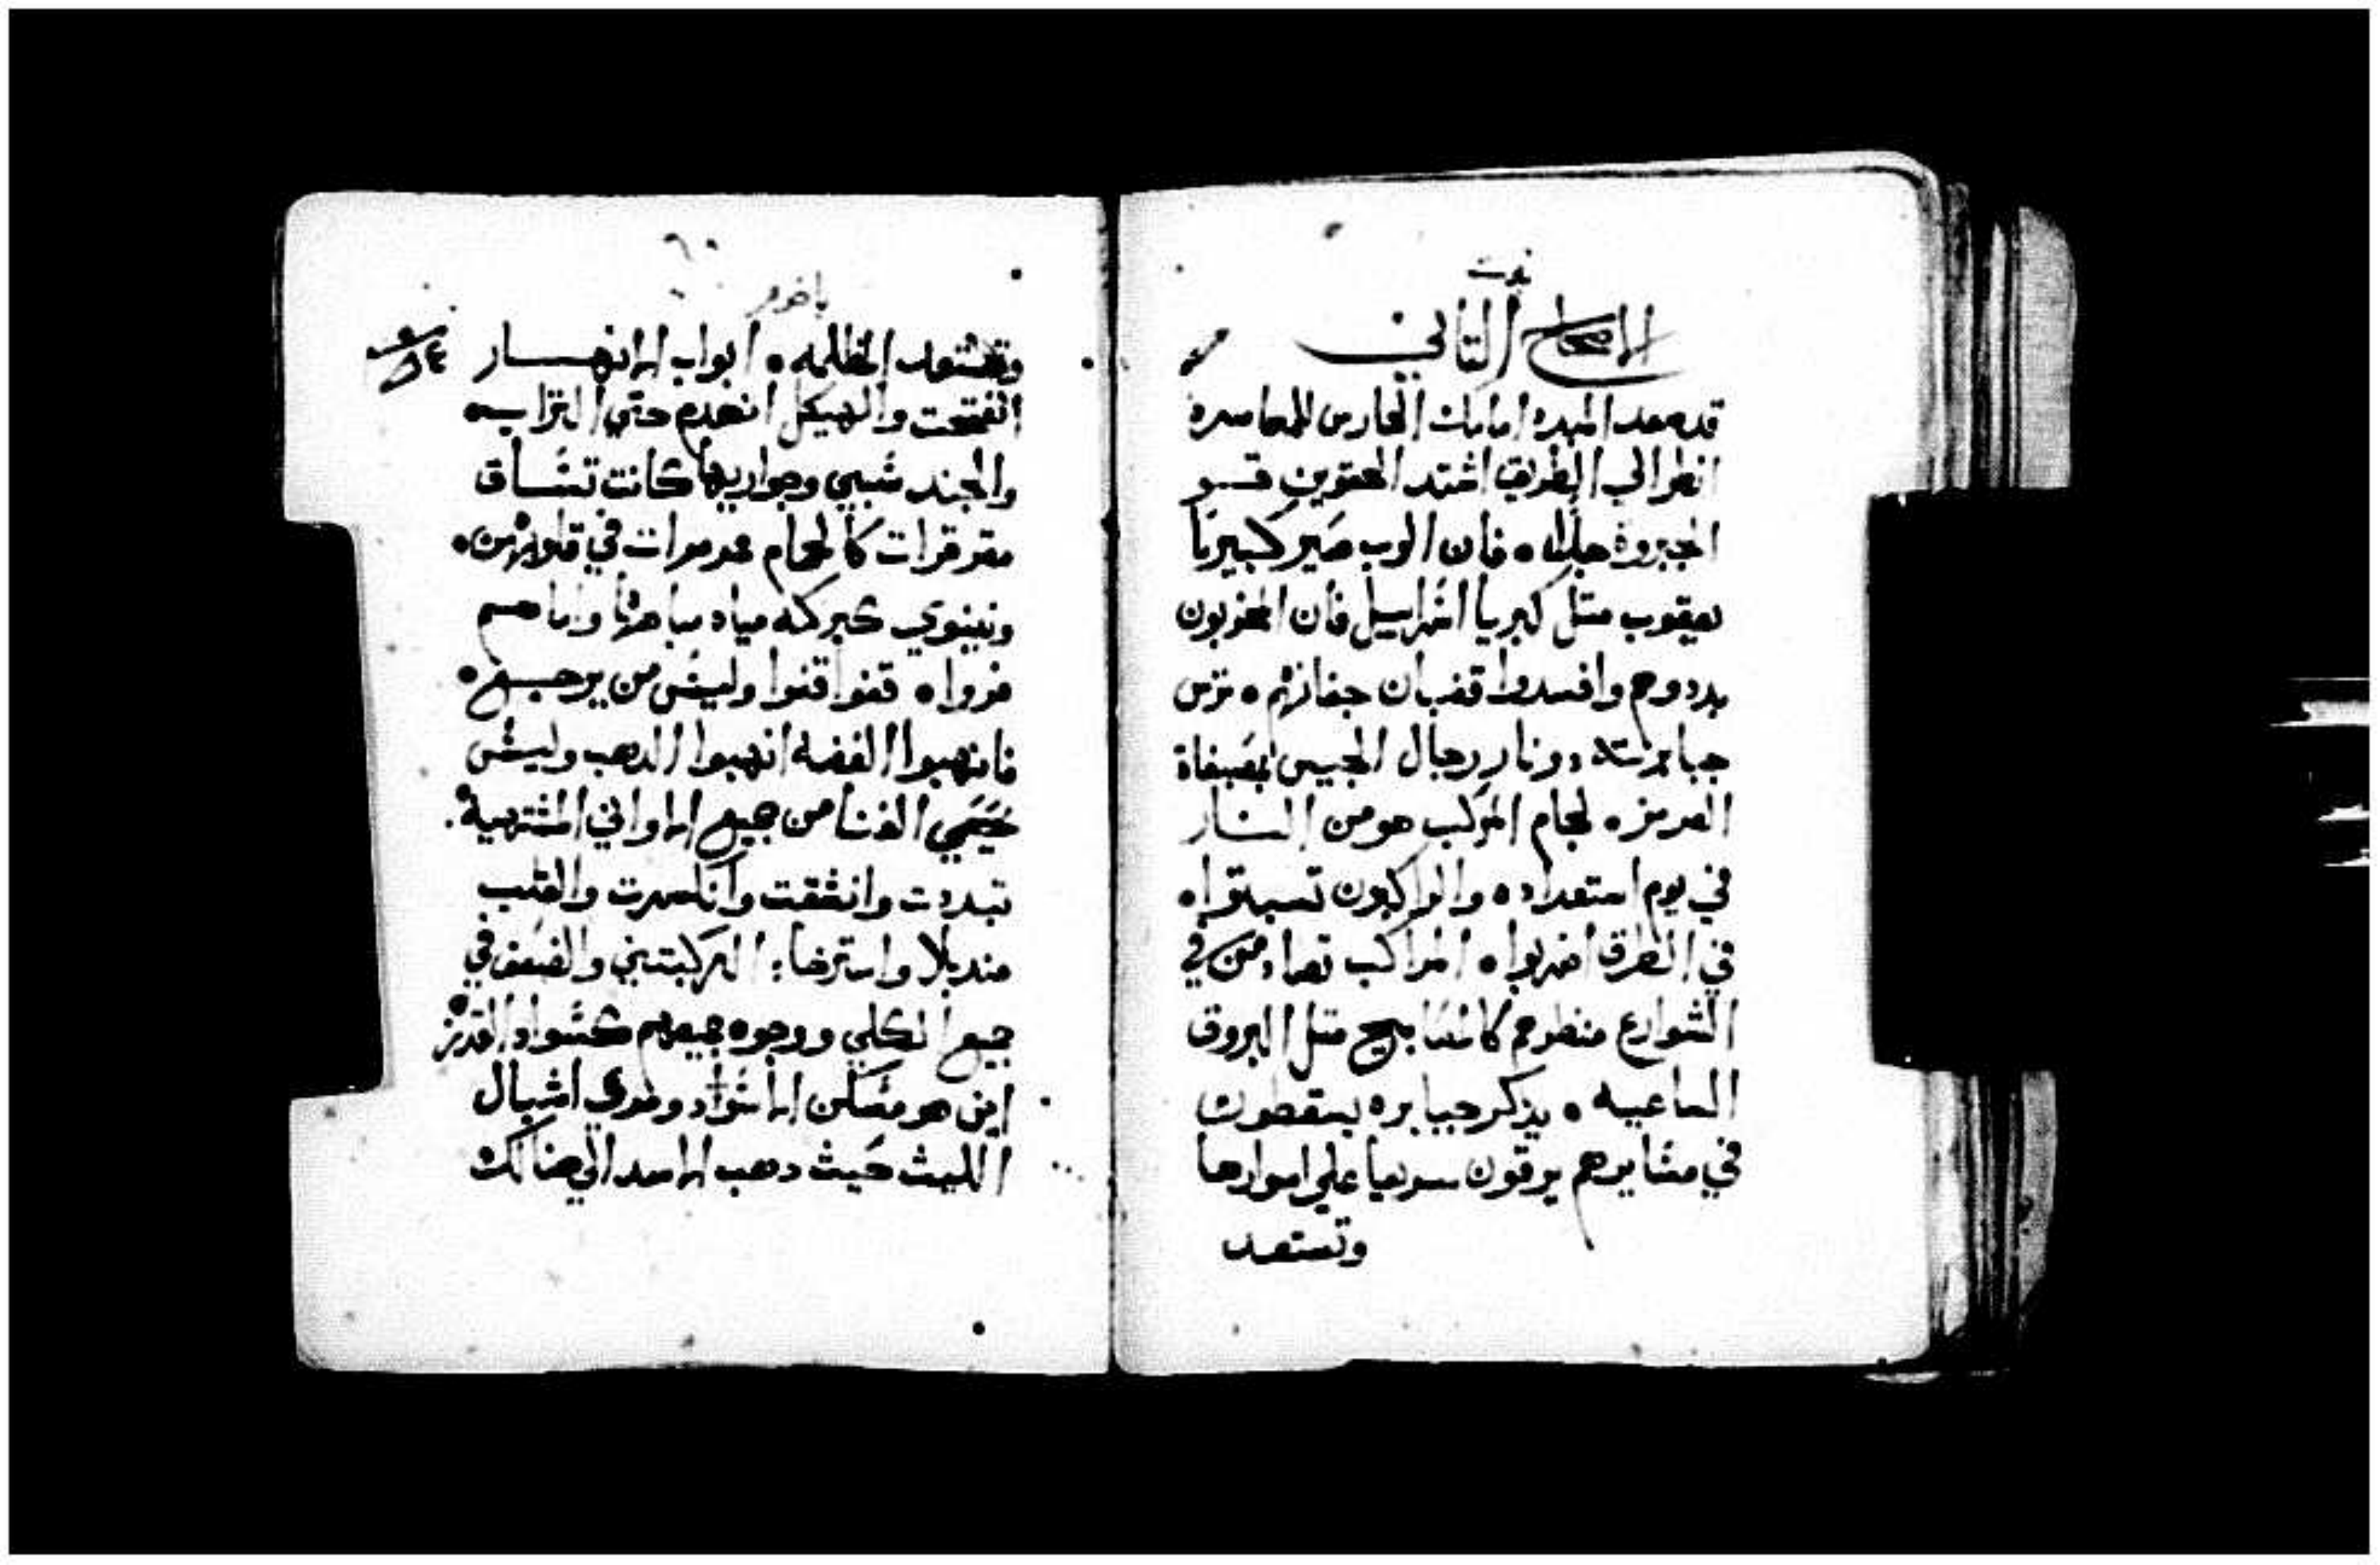 نوت
الاصحاح التاني
قد صعد المبدد امامك الحارس المحاصره
انظر الي الطريق اشتد الحقوين قسو
الجبروة جدا ٥ فان الرب صير كبيريا
يعقوب متل كبريا اسراييل فان المخربون
بددوهم وافسدوا قضبان جفانهم ٥ ترس
جبابرته ونار رجال الجيس بصبغاة
القرمز ٥ لجام المركب هو من النار
في يوم استعداده والراكبون تسبتوا ٥
في الطرق اضربوا ٥ المراكب تصادمن في
الشوارع منظرهم كالمصابيح متل البروق
الساعيه ٥ يذكر جبابره يسقطون
في مسايرهم يرقون سريعا علي اسوارها
وتستعد
ناخوم
وتستعد المظلمه ٥ ابواب الانهار
انفتحت والهيكل انهدم حتي التراب ٥
والجند سبيي وجواريها كانت تساق
مقرقرات كالحمام مرمرات في قلوبهن ٥
ونينوي كبركة مياه مياهها واما هم
فروا ٥ قفوا قفوا وليس من يرجع ٥
فانهبوا الفضه انهبوا الدهب وليس
يحصي الغنا من جميع الاواني المشتهية .
تبددت وانشقت وانكسرت والقلب
مندبلا واسترخاء الركبتين والضعف في
جميع الكلي ووجوه جميعهم كسواد القدر
اين هو مسكن الاسواد ومرعي اشبال
الليث حيث دهب الاسد الي هنالك